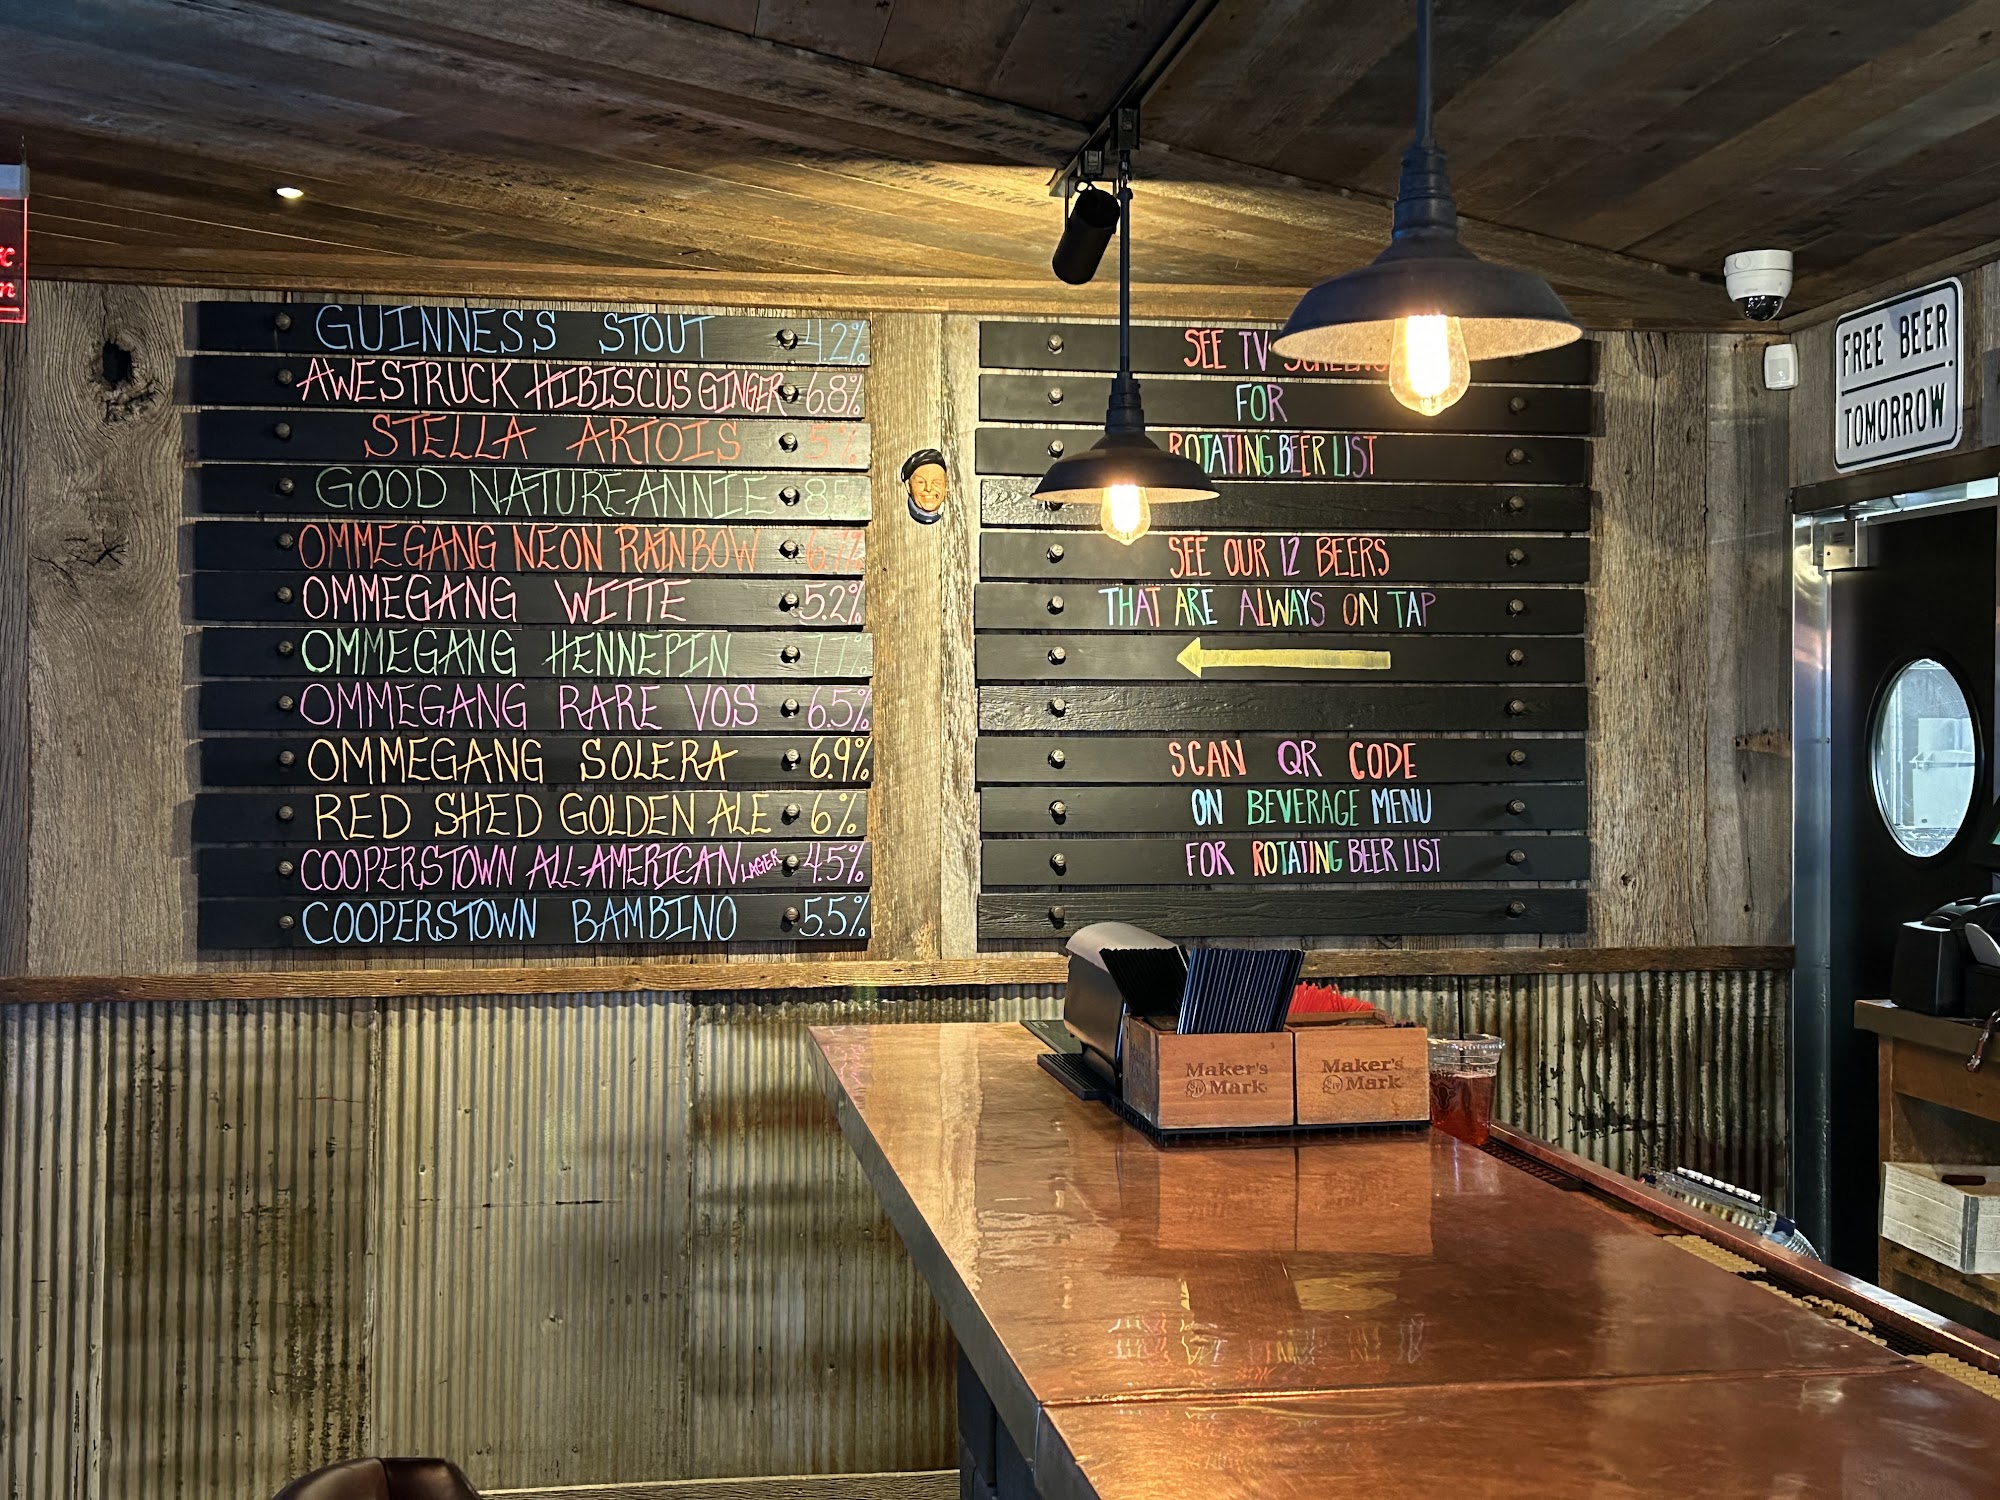 GUINNESS STOUT 4.2%
AWESTRUCK HIBISCUS GINGER 6.8%
STELLA ARTOIS 5%
GOOD NATURE ANNIE
OMMEGANG NEON RAINBOW 6.7%
OMMEGANG WITTE 5.2%
OMMEGANG HENNEPIN 7.7%
OMMEGANG RARE VOS 6.5%
OMMEGANG SOLERA 6.9%
RED SHED GOLDEN ALE 6%
COOPERSTOWN ALL-AMERICAN LAGER 4.5%
COOPERSTOWN BAMBINO 5.5%
SEE TV SCREENS
FOR
ROTATING BEER LIST
SEE OUR 12 BEERS
THAT ARE ALWAYS ON TAP
SCAN QR CODE
ON BEVERAGE MENU
FOR ROTATING BEER LIST
FREE BEER
TOMORROW
Maker's
IV Mark
Maker's
IV Mark